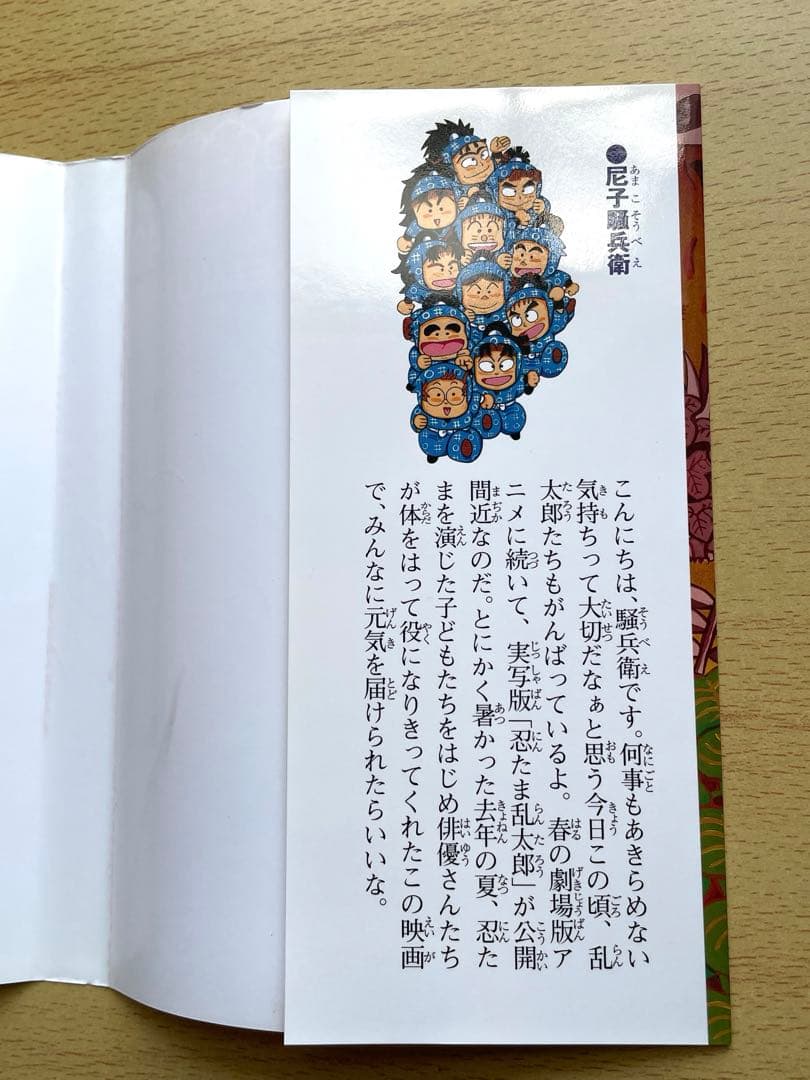 ●尼子騒兵衛
あまこそうべえ
こんにちは、騒兵衛です。何事もあきらめない
気持ちって大切だなぁと思う今日この頃、乱
太郎たちもがんばっているよ。春の劇場版ア
ニメに続いて、実写版「忍たま乱太郎」が公開
間近なのだ。とにかく暑かった去年の夏、忍た
まを演じた子どもたちをはじめ俳優さんたち
が体をはって役になりきってくれたこの映画
で、みんなに元気を届けられたらいいな。